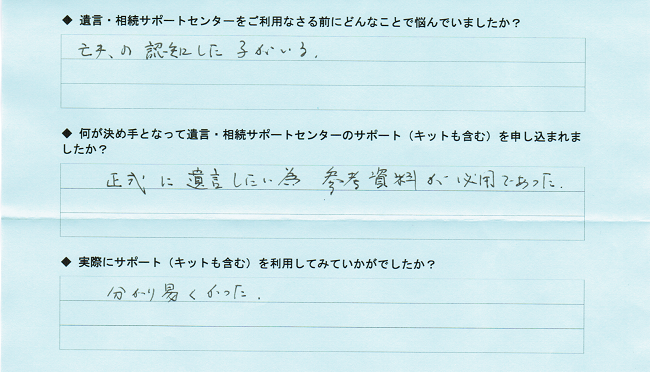 ◆ 遺言・相続サポートセンターをご利用なさる前にどんなことで悩んでいましたか？
亡夫の認知した子がいる。
◆ 何が決め手となって遺言・相続サポートセンターのサポート（キットも含む）を申し込まれま
したか？
正式に遺言したい為 参考資料が必用であった。
◆ 実際にサポート（キットも含む）を利用してみていかがでしたか？
分かり易くかった。